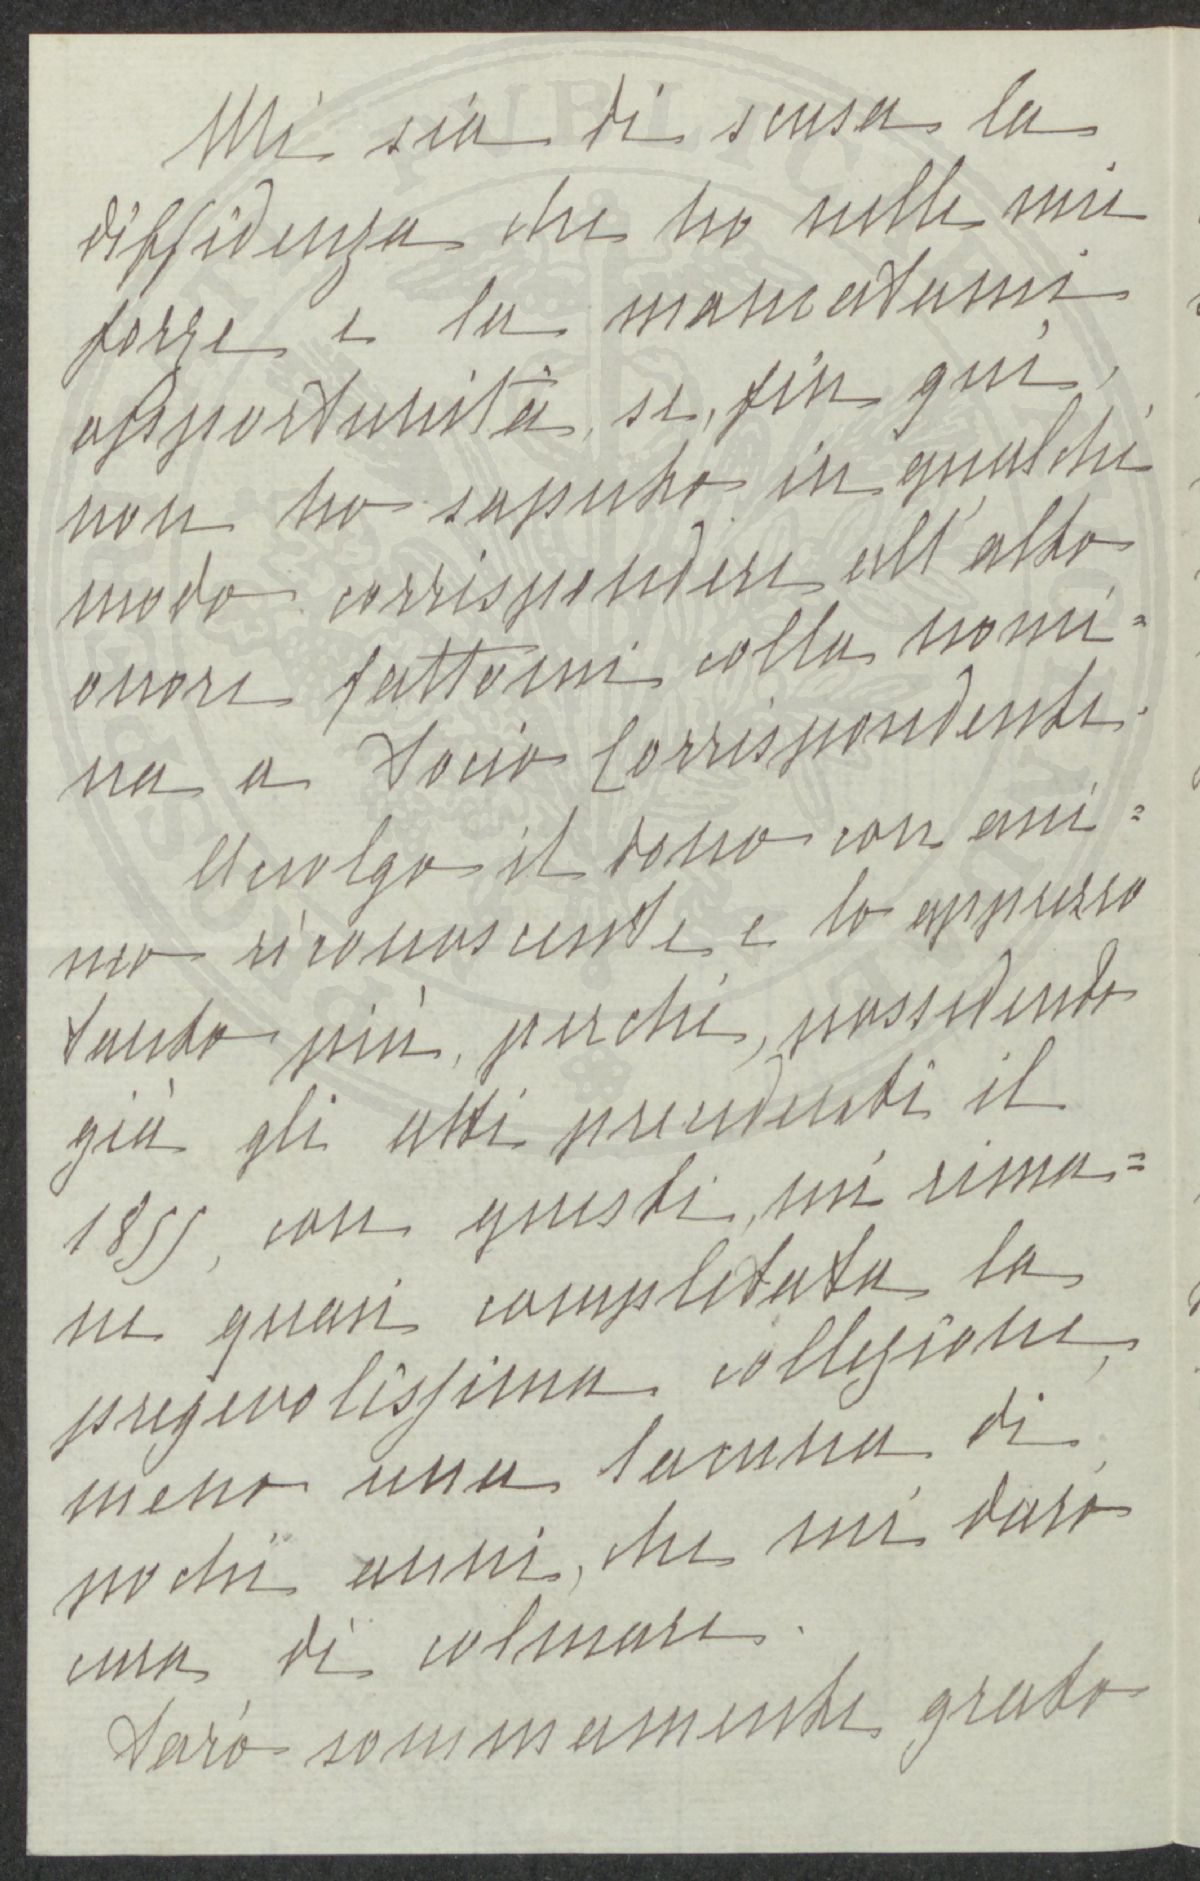 Mi sia di scusa la
diffidenza che ho nelle mie
forze e la mancatami
opportunità, se, fin qui,
non ho saputo in qualche
modo corrispondere all'alto
onore fattomi colla nomi=
na a Socio Corrispondente.
Accolgo il dono con ani=
mo riconoscente e lo apprezzo
tanto più, perchè, possedendo
già gli atti precedenti il
1855, con questi, mi rima=
ne quasi completata la
pregevolissima collezione,
meno una lacuna di
pochi anni, che mi darò
cura di colmare.
Sarò sommamente grato